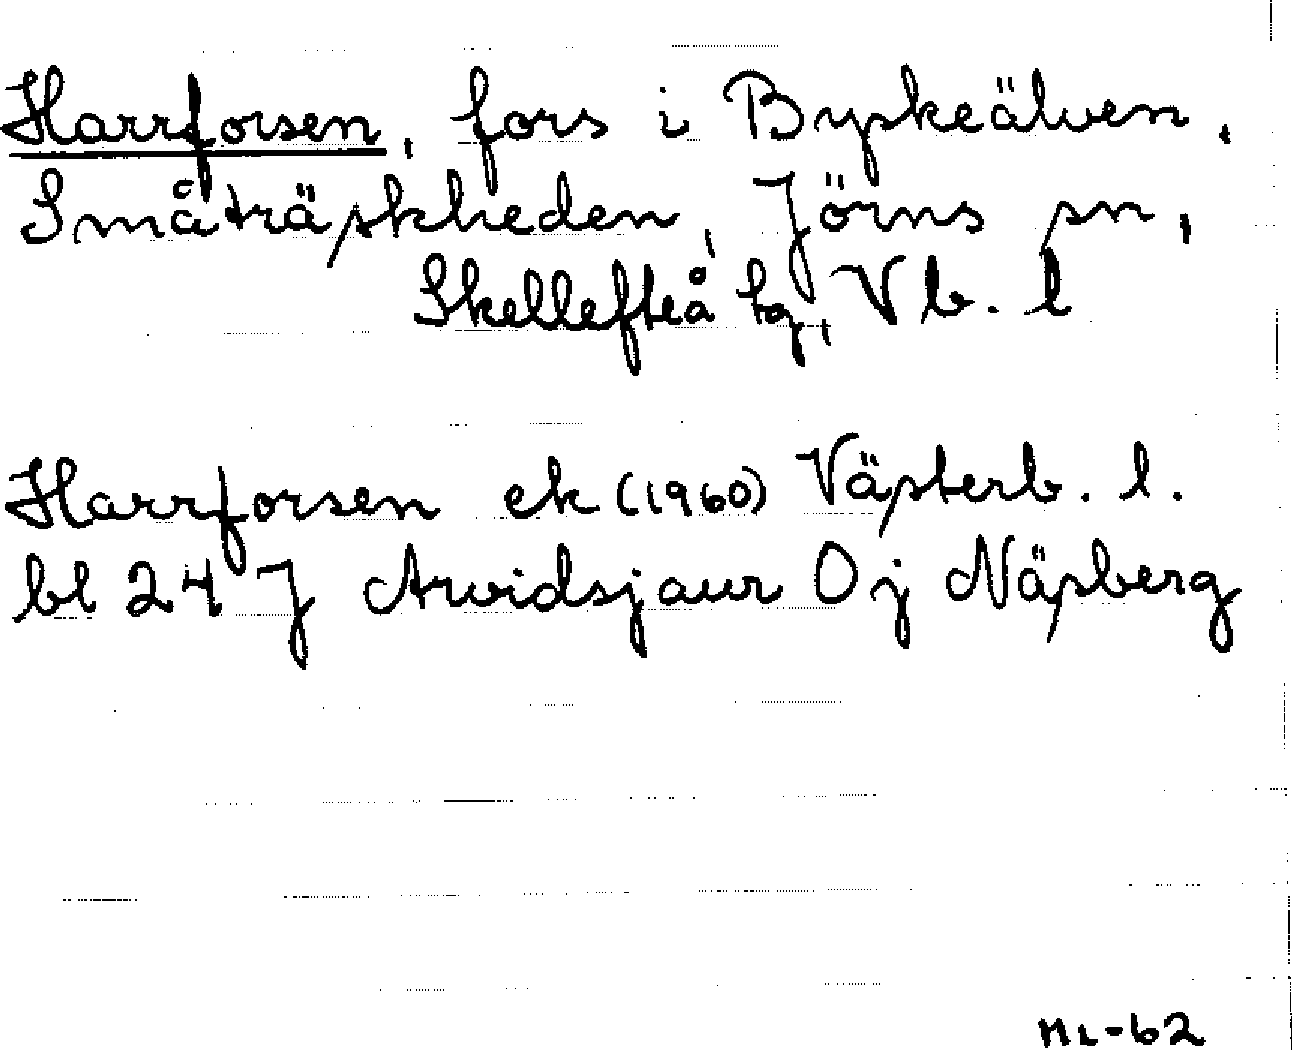 Harrforsen, fors i Byskeälven,
Småträskheden, Jörns sn,
Skellefteå tg, Vb. l
Harrforsen ek (1960) Västerb. l.
bl 24 J Arvidsjaur Ö j Näsberg
NL-62